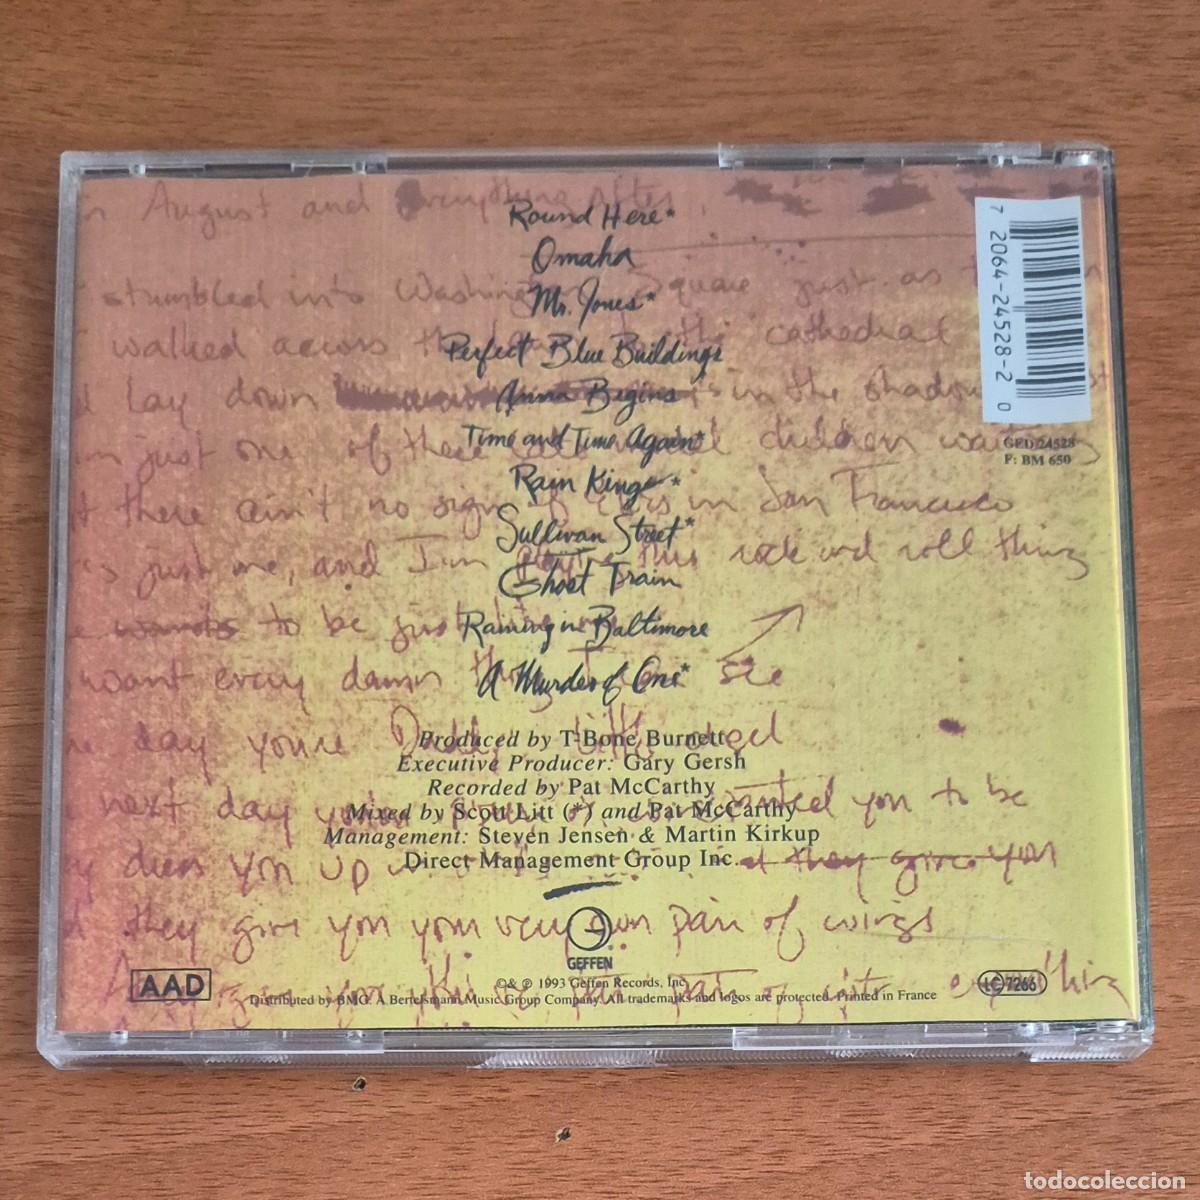 August and Everything after,
Round Here*
Omaha
stumbled into Washington Square just as
Mr. Jones*
walked across the cathedral
Perfect Blue Buildings
lay down in the shadow
Anna Begins
just one of these children waiting
Time and Time Again*
Rain King*
there ain't no sign of in San Francisco
Sullivan Street*
just me, and I'm this rock and roll thing
Ghost Train
to be just
Raining in Baltimore
want every damn thing see
A Murder of One*
day you're
Produced by T-Bone Burnett
Executive Producer: Gary Gersh
Recorded by Pat McCarthy
next day wanted you to be
Mixed by Scott Litt (*) and Pat McCarthy
Management: Steven Jensen & Martin Kirkup
Direct Management Group Inc.
dress you up they give you
they give you your very own pair of wings
GEFFEN
AAD
© & ℗ 1993 Geffen Records, Inc.
Distributed by BMG. A Bertelsmann Music Group Company. All trademarks and logos are protected. Printed in France
LC 7266
7 20642-4528-2 0
GED 24528
F: BM 650
todocoleccion